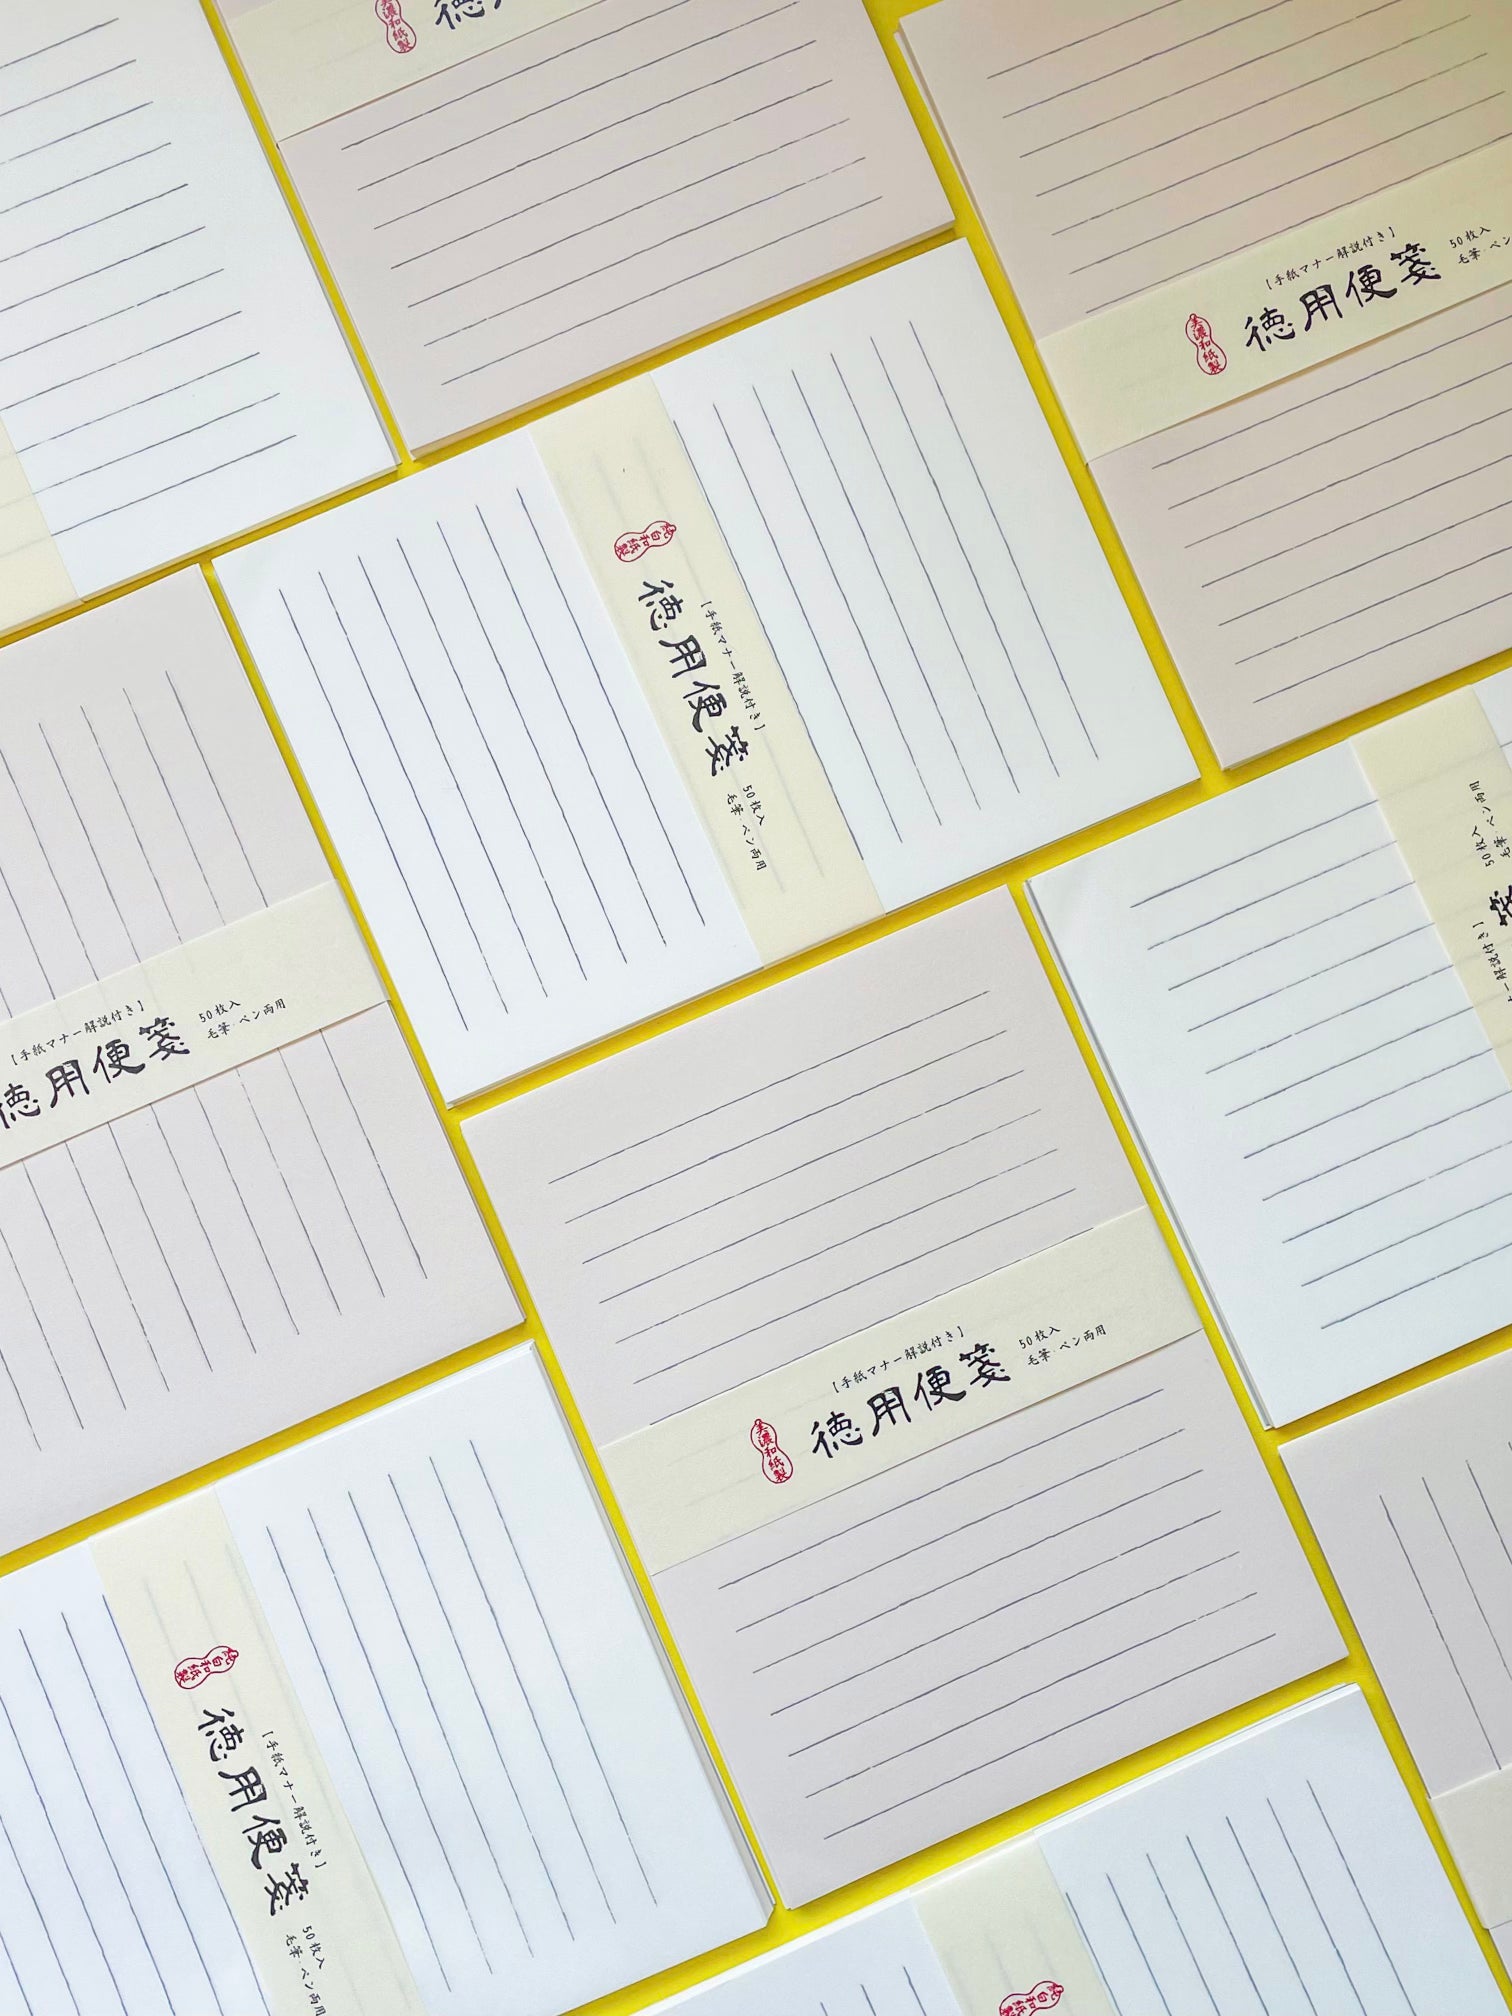 美濃和紙製
徳
【手紙マナー解説付き】
徳用便箋
50枚入
毛筆・ペン
美濃和紙製
【手紙マナー解説付き】
徳用便箋
50枚入
毛筆・ペン両用
純白和紙製
50枚入
毛筆・ペン両用
箋
ー解説付き】
【手紙マナー解説付き】
徳用便箋
50枚入
毛筆・ペン両用
【手紙マナー解説付き】
徳用便箋
50枚入
毛筆・ペン両用
美濃和紙製
【手紙マナー解説付き】
徳用便箋
50枚入
毛筆・ペン両用
純白和紙製
純白和紙製